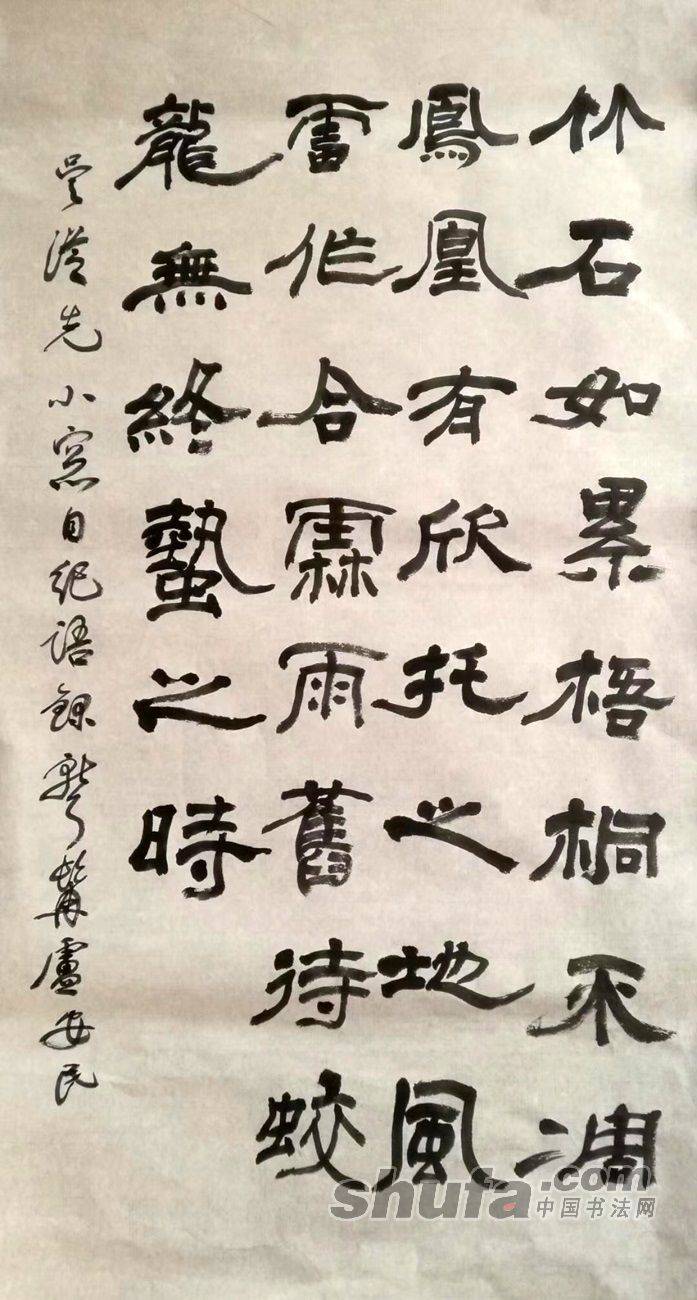 竹石如累梧桐不凋
鳳凰有欣托之地風
雷作合霖雨舊待蛟
龍無終蟄之時
吳從先小窓自紀語錄髯盧安民
shufa.com
中国书法网